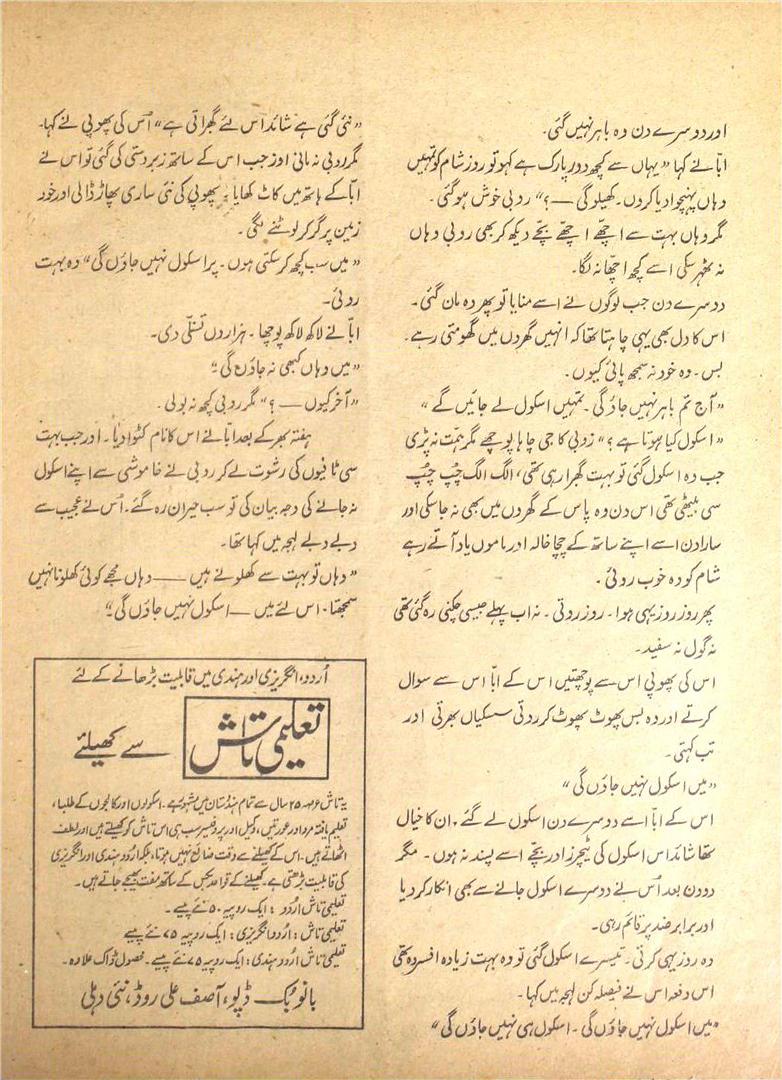 اور دوسرے دن وہ باہر نہیں گئی۔
ابّا نے کہا "یہاں سے کچھ دور پارک ہے کہو تو روز شام کو تمہیں
وہاں پہنچوا دیا کروں۔ کھیلو گی ——؟" روبی خوش ہو گئی۔
مگر وہاں بہت سے اچھّے اچھّے بچّے دیکھ کر بھی روبی وہاں
نہ ٹھہر سکی اسے کچھ اچھّا نہ لگا۔
دوسرے دن جب لوگوں نے اسے منایا تو پھر وہ مان گئی۔
اس کا دل بھی یہی چاہتا تھا کہ انہیں گھروں میں گھومتی رہے۔
بس۔ وہ خود نہ سمجھ پائی کیوں۔
"آج تم باہر نہیں جاؤ گی۔ تمہیں اسکول لے جائیں گے"
"اسکول کیا ہوتا ہے؟" روبی کا جی چاہا پوچھے مگر ہمّت نہ پڑی
جب وہ اسکول گئی تو بہت گھبرا رہی تھی، الگ الگ چُپ چُپ
سی بیٹھی تھی اس دن وہ پاس کے گھروں میں بھی نہ جا سکی اور
سارا دن اسے اپنے ساتھ کے چچا خالہ اور ماموں یاد آتے رہے
شام کو وہ خوب روئی۔
پھر روز روز یہی ہوا۔ روز روتی۔ نہ اب پہلے جیسی چکنی رہ گئی تھی
نہ گول نہ سفید۔
اس کی پھوپی اس سے پوچھتیں اس کے ابّا اس سے سوال
کرتے اور وہ بس پھوٹ پھوٹ کر روتی سسکیاں بھرتی اور
تب کہتی۔
"میں اسکول نہیں جاؤں گی"
اس کے ابّا اسے دوسرے دن اسکول لے گئے۔ ان کا خیال
تھا شائد اس اسکول کی ٹیچرز اور بچّے اسے پسند نہ ہوں۔ مگر
دو دن بعد اُس نے دوسرے اسکول جانے سے بھی انکار کر دیا
اور برابر ضد پر قائم رہی۔
وہ روز یہی کرتی۔ تیسرے اسکول گئی تو وہ بہت زیادہ افسردہ تھی
اس دفعہ اس نے فیصلہ کن لہجہ میں کہا۔
"میں اسکول نہیں جاؤں گی۔ اسکول ہی نہیں جاؤں گی"
"نئی گئی ہے شائد اس لئے گھبراتی ہے" اُس کی پھوپی نے کہا۔
مگر روبی نہ مانی اور جب اس کے ساتھ زبردستی کی گئی تو اس نے
ابّا کے ہاتھ میں کاٹ کھایا۔ پھوپی کی نئی ساری پھاڑ ڈالی اور خود
زمین پر گر کر لوٹنے لگی۔
"میں سب کچھ کر سکتی ہوں۔ پر اسکول نہیں جاؤں گی" وہ بہت
روئی۔
ابّا نے لاکھ لاکھ پوچھا۔ ہزاروں تسلّی دی۔
"میں وہاں کبھی نہ جاؤں گی"
"آخر کیوں ——؟" مگر روبی کچھ نہ بولی۔
ہفتہ بھر کے بعد ابّا نے اس کا نام کٹوا دیا۔ اور جب بہت
سی ٹافیوں کی رشوت لے کر روبی نے خاموشی سے اپنے اسکول
نہ جانے کی وجہ بیان کی تو سب حیران رہ گئے۔ اُس نے عجیب سے
دبے دبے لہجہ میں کہا تھا۔
"وہاں تو بہت سے کھلونے ہیں —— وہاں مجھے کوئی کھلونا نہیں
سمجھتا۔ اس لئے میں — اسکول نہیں جاؤں گی"
اُردو، انگریزی اور ہندی میں قابلیت بڑھانے کے لئے
تعلیمی تاش سے کھیلئے
یہ تاش ۲۵ سال سے تمام ہندوستان میں مشہور ہے۔ اسکولوں اور کالجوں کے طلباء،
تعلیم یافتہ مرد اور عورتیں، وکیل اور پروفیسر سب ہی اس تاش کو کھیلتے ہیں اور لطف
اٹھاتے ہیں۔ اس کے کھیلنے سے وقت ضائع نہیں ہوتا، بلکہ اُردو ہندی اور انگریزی
کی قابلیت بڑھتی ہے۔ کھیلنے کے قواعد بکس کے ساتھ مفت بھیجے جاتے ہیں۔
تعلیمی تاش اُردو : ایک روپیہ ۵۰ نئے پیسے۔
تعلیمی تاش : اُردو انگریزی : ایک روپیہ ۷۵ نئے پیسے
تعلیمی تاش اُردو ہندی : ایک روپیہ ۷۵ نئے پیسے۔ محصول ڈاک علاوہ۔
بانو بُک ڈپو، آصف علی روڈ، نئی دہلی